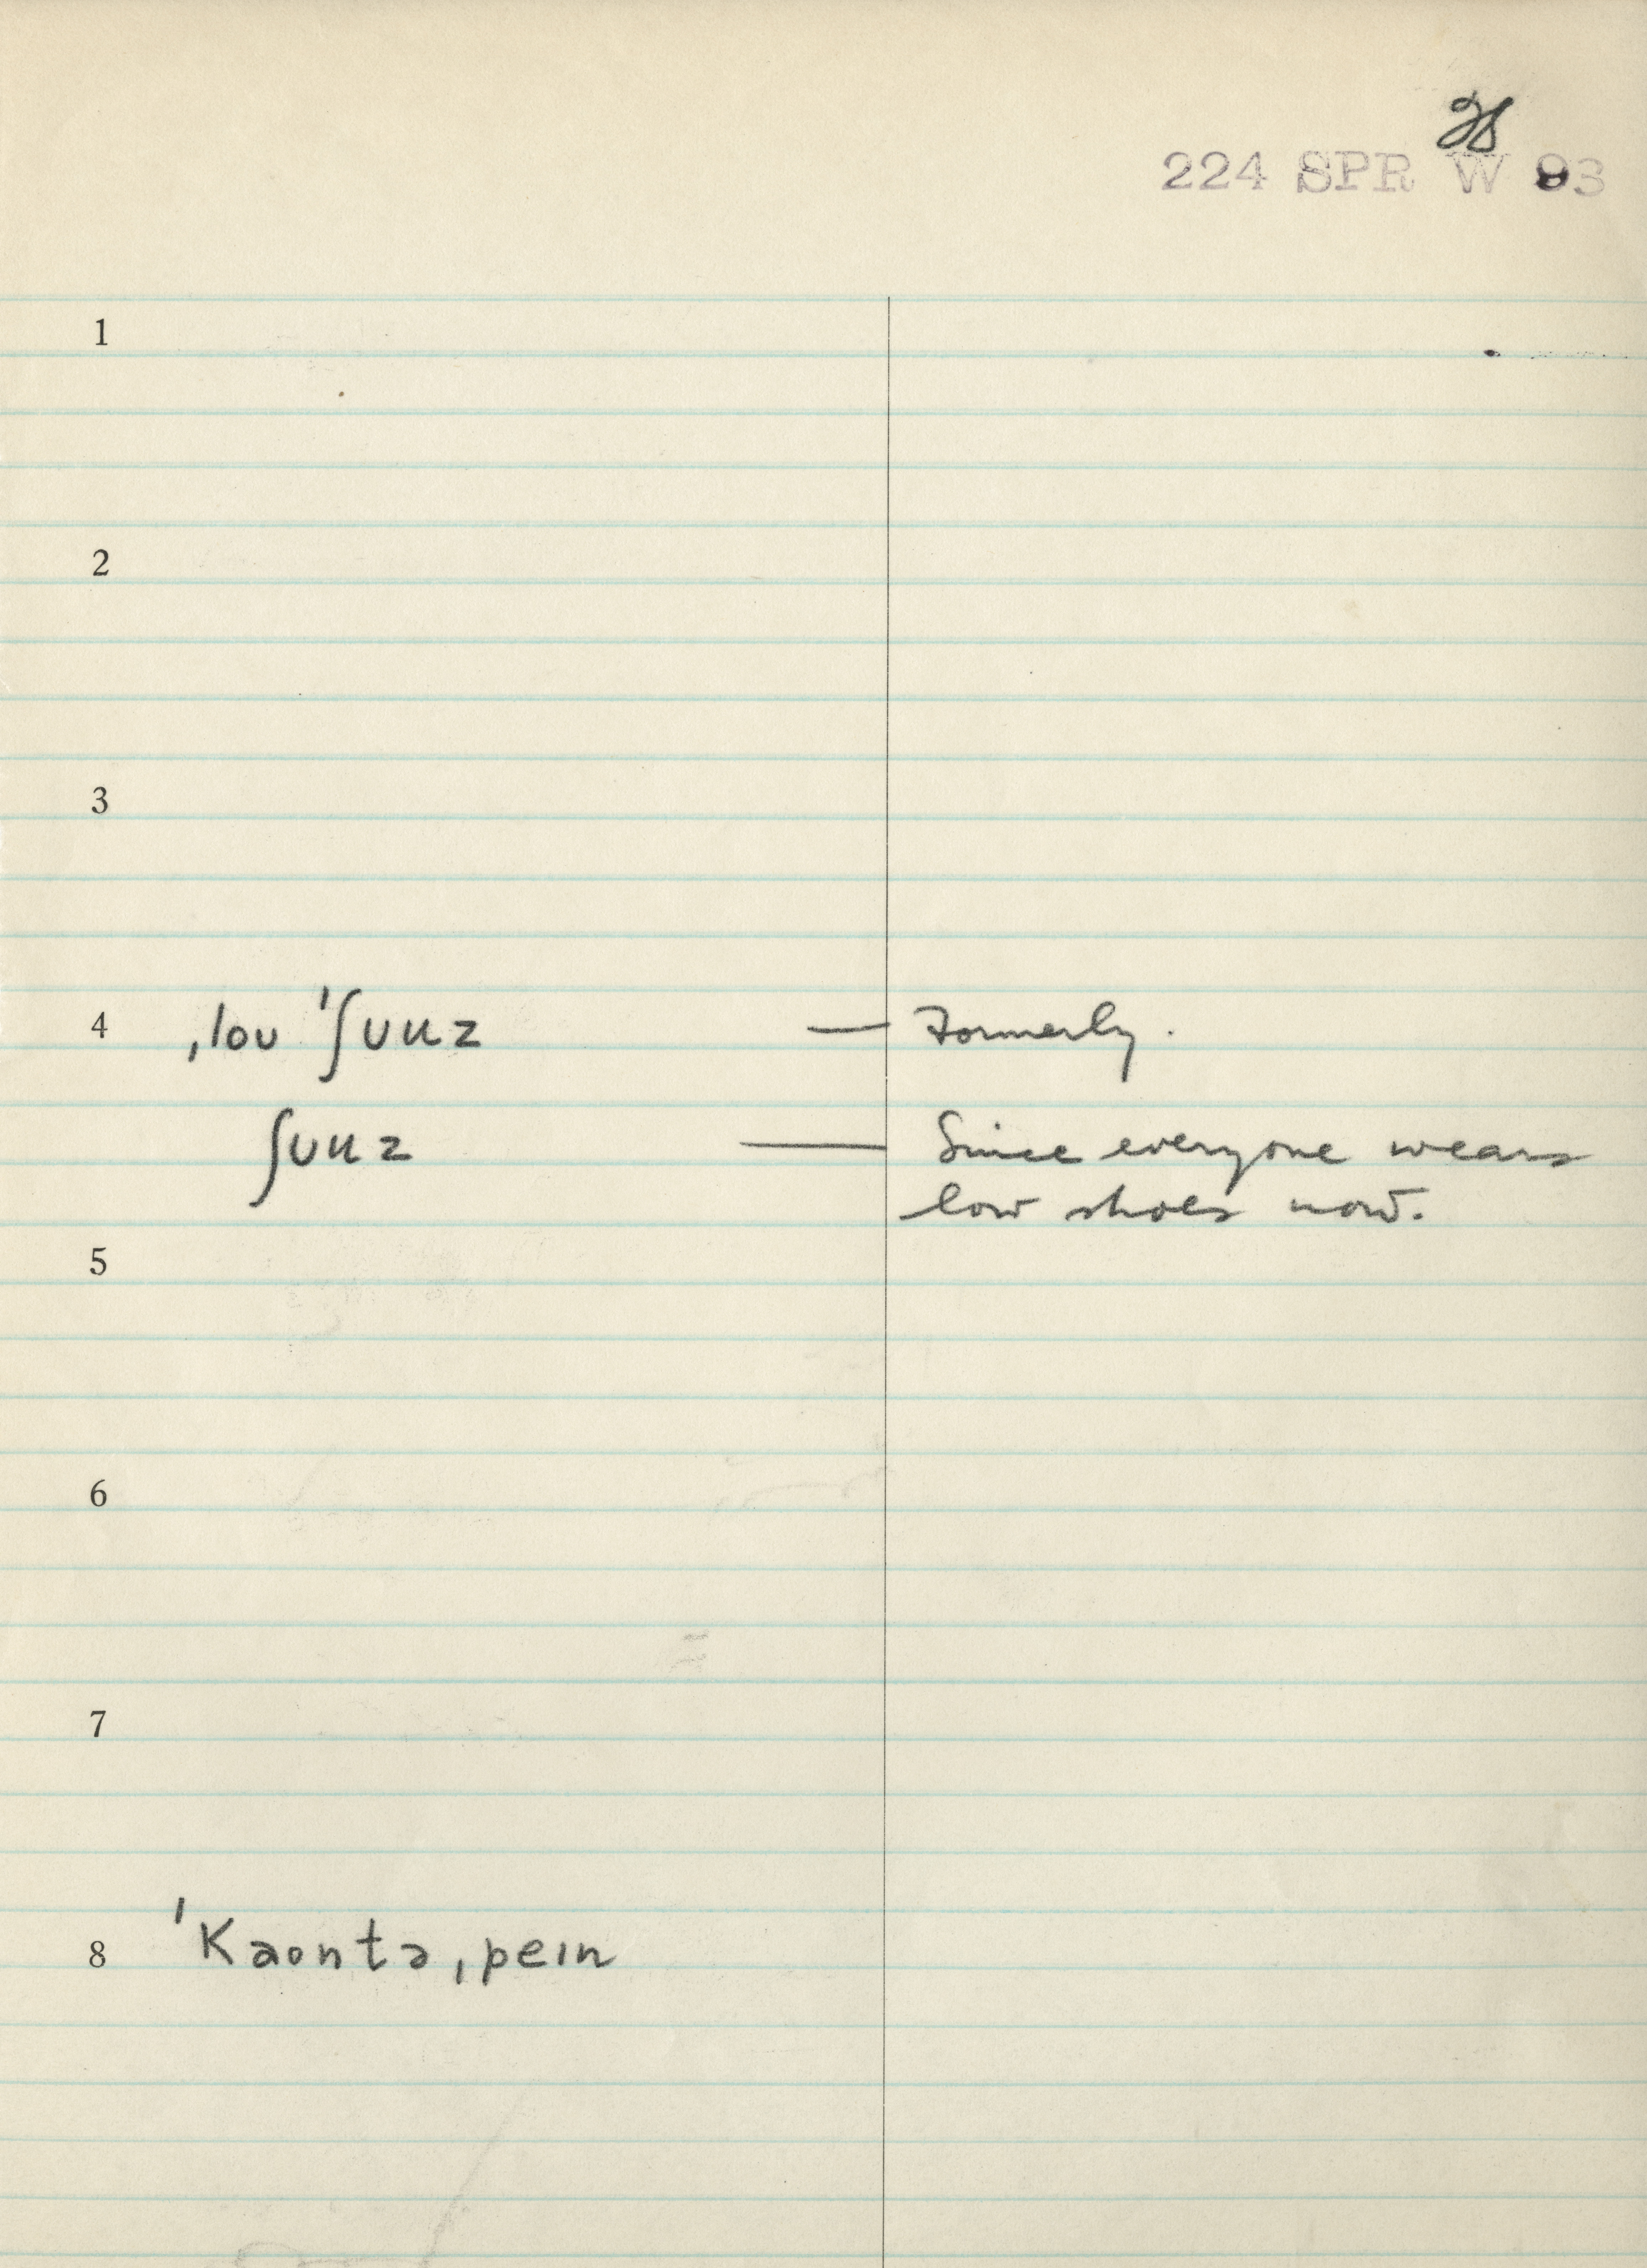 28
224 SPR W 93
1
2
3
4 ˌloʊ ˈʃuuz — Formerly.
ʃuuz — Since everyone wears
low shoes now.
5
6
7
8 ˈkaontə ˌpeɪn